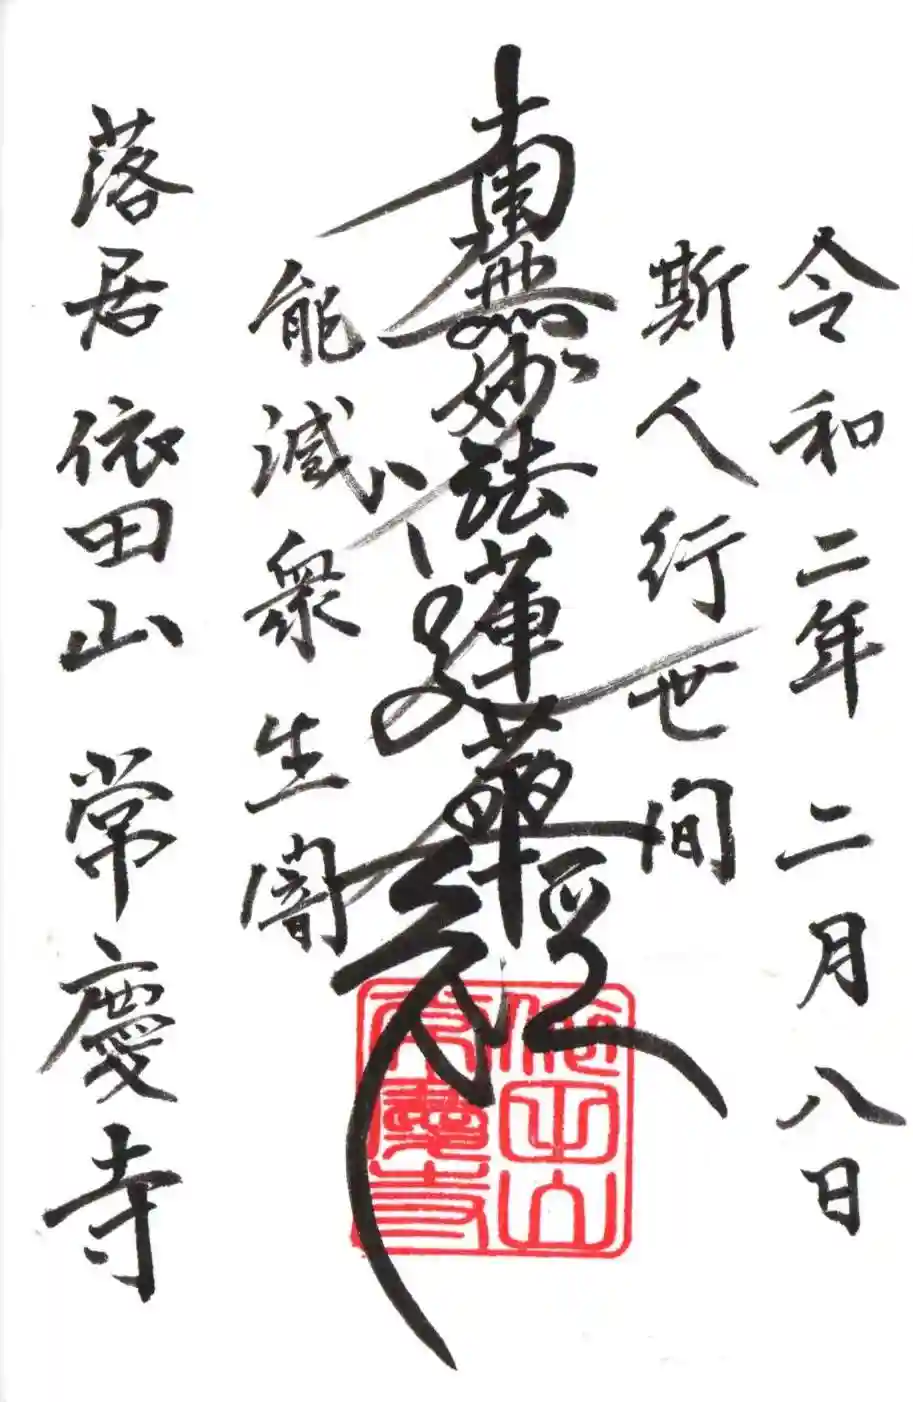 令和二年二月八日
斯人行世间
南無妙法蓮華経
能滅衆生闇
落居 依田山 常慶寺
依田山
常慶寺